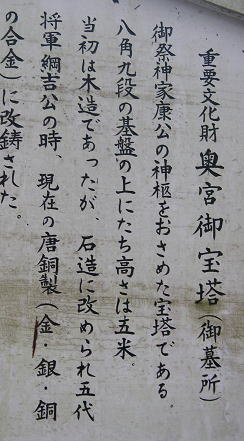 重要文化財 奥宮御宝塔（御墓所）
御祭神家康公の神柩をおさめた宝塔である。
八角九段の基盤の上にたち高さは五米。
当初は木造であったが、石造に改められ五代
将軍綱吉公の時、現在の唐銅製（金・銀・銅
の合金）に改鋳された。